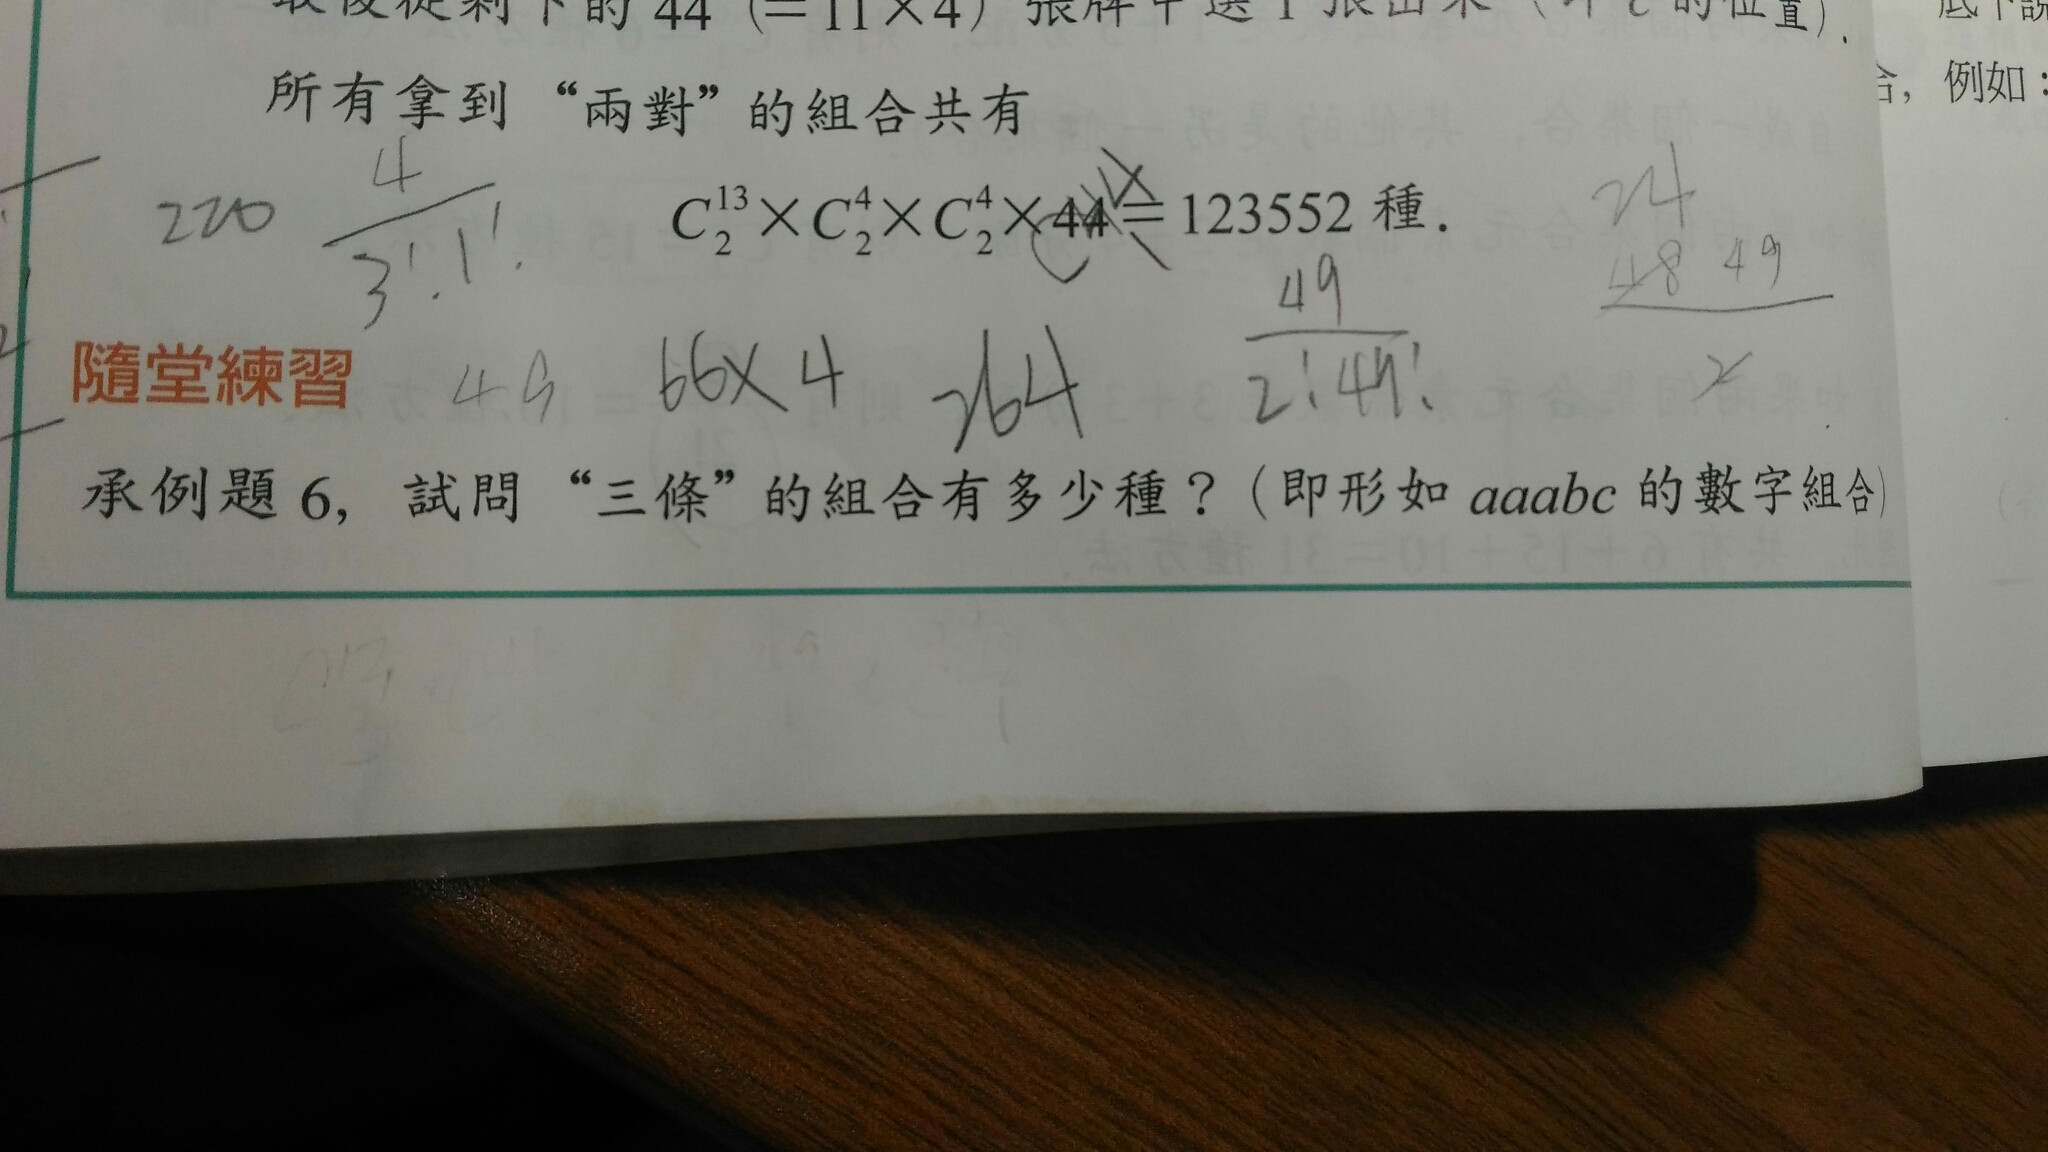 最後從剩下的 44 (=11×4) 張牌中選 1 張出來 (即 c 的位置).
底下說
所有拿到 “兩對” 的組合共有
合, 例如:
C₂¹³×C₂⁴×C₂⁴×44=123552 種.
220
4
3!.1!
24
48 49
2
49
2!49!
隨堂練習
49
66×4
264
承例題 6, 試問 “三條” 的組合有多少種? (即形如 aaabc 的數字組合)